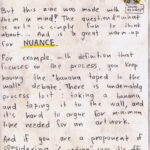 But this zine was made with
them in mind? The question "what
is art" is simple fun to think
about... And is a great warm-up
for NUANCE.
For example, with definition that
focuses on the process, you keep
having the "banana taped to the
wall" debate. There is undeniably
process to taking a banana,
and taping it to the wall, and
it's hard to argue for minimum
time needed for an art work.
And if you are a proponent of